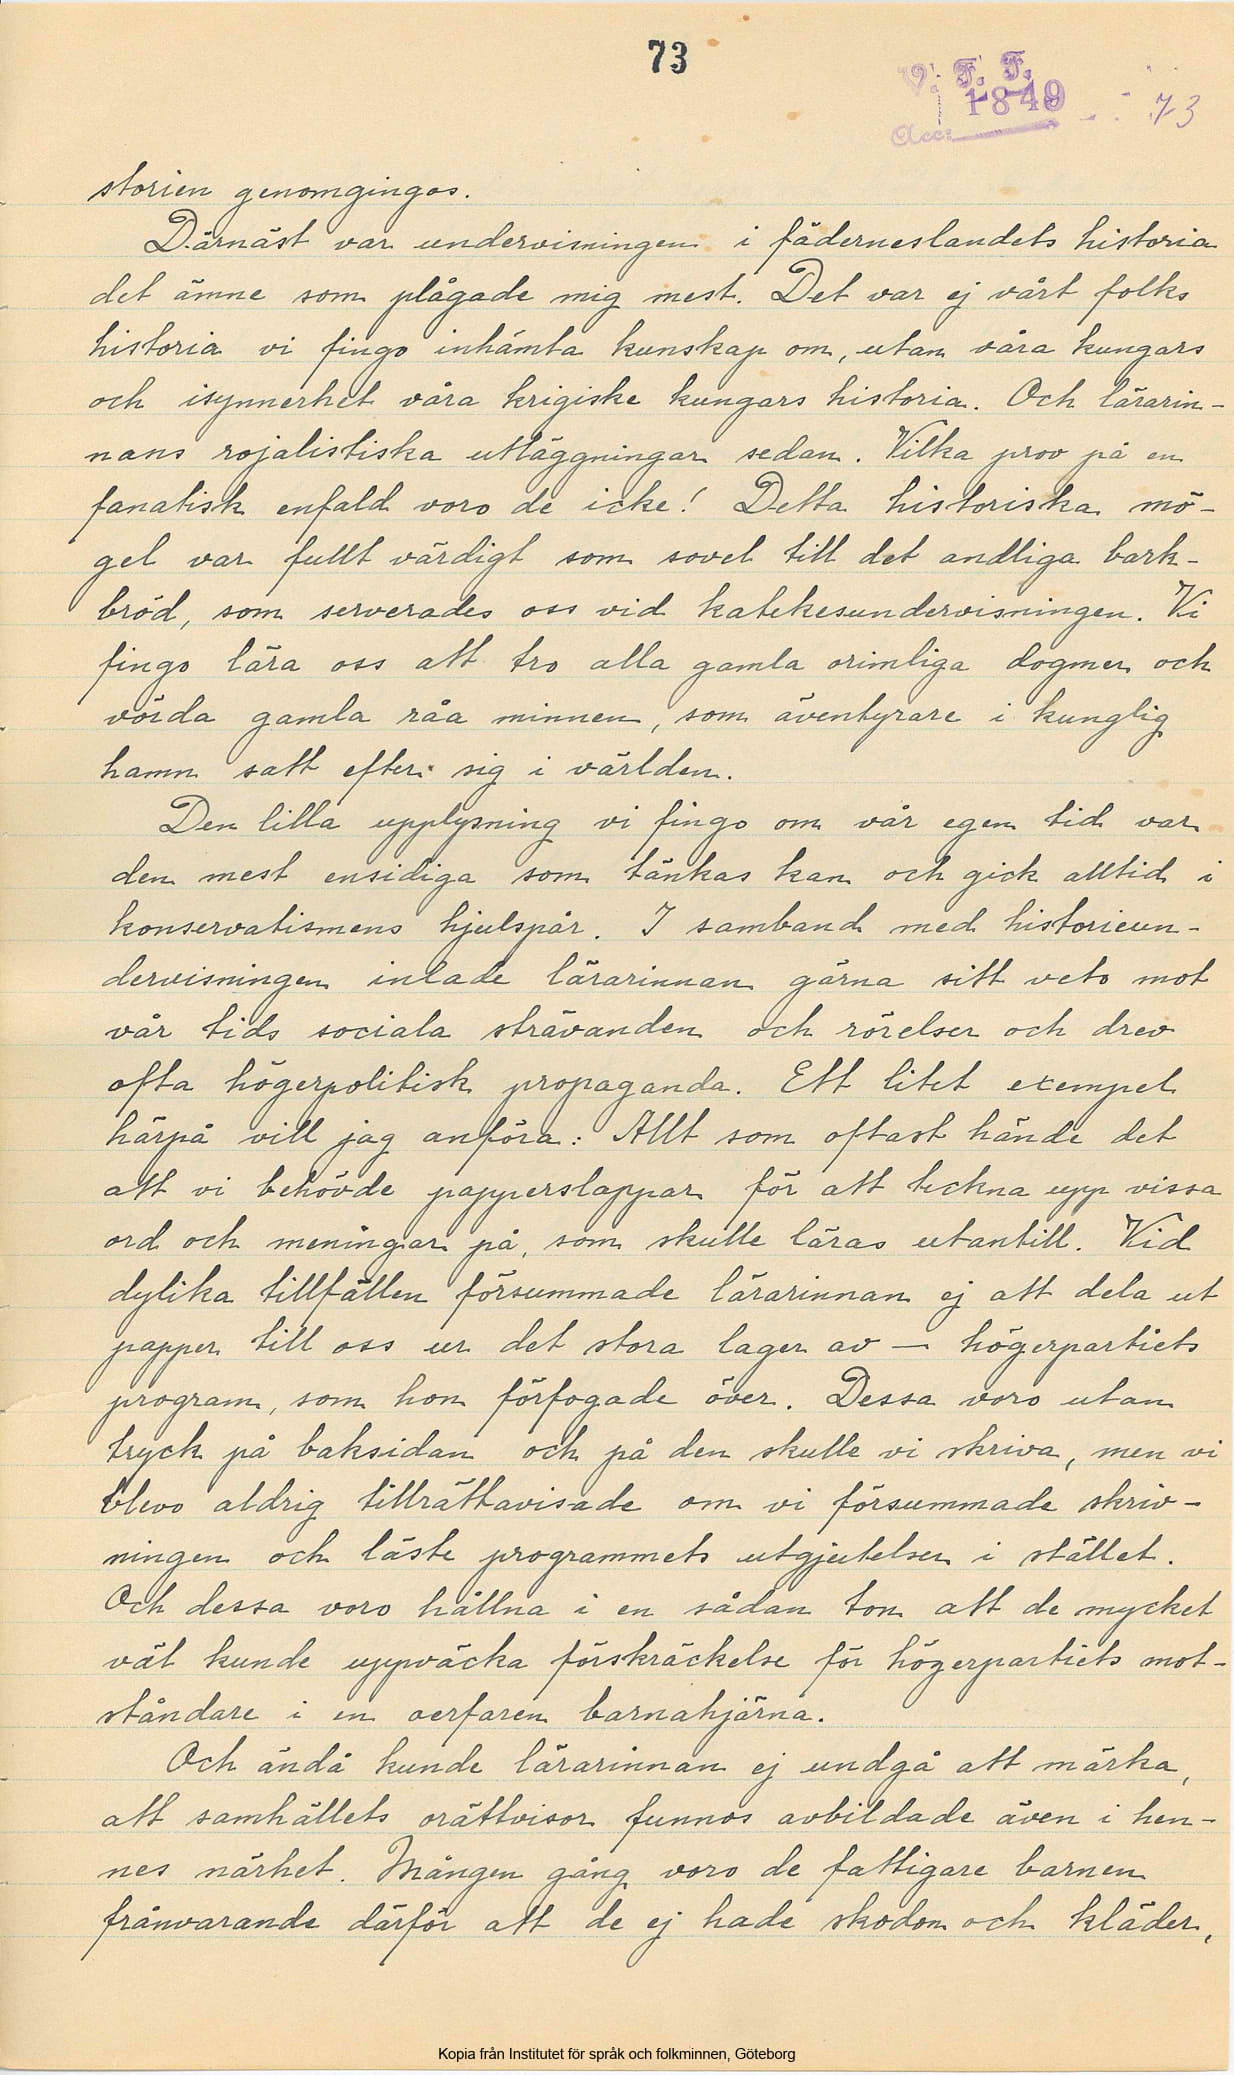 73
V. F. F.
1849
Acc:
73
storien genomgingos.
Därnäst var undervisningen i fäderneslandets historia
det ämne som plågade mig mest. Det var ej vårt folks
historia vi fingo inhämta kunskap om, utan våra kungars
och isynnerhet våra krigiske kungars historia. Och lärarin-
nans rojalistiska utläggningar sedan. Vilka prov på en
fanatisk enfald voro de icke! Detta historiska mö-
gel var fullt värdigt som sovel till det andliga bark-
bröd, som serverades oss vid katekesundervisningen. Vi
fingo lära oss att tro alla gamla orimliga dogmer och
vörda gamla råa minnen, som äventyrare i kunglig
hamn satt efter sig i världen.
Den lilla upplysning vi fingo om vår egen tid var
den mest ensidiga som tänkas kan och gick alltid i
konservatismens hjulspår. I samband med historieun-
dervisningen inlade lärarinnan gärna sitt veto mot
vår tids sociala strävanden och rörelser och drev
ofta högerpolitisk propaganda. Ett litet exempel
härpå vill jag anföra: Allt som oftast hände det
att vi behövde papperslappar för att teckna upp vissa
ord och meningar på, som skulle läras utantill. Vid
dylika tillfällen försummade lärarinnan ej att dela ut
papper till oss ur det stora lager av — högerpartiets
program, som hon förfogade över. Dessa voro utan
tryck på baksidan och på den skulle vi skriva, men vi
blevo aldrig tillrättavisade om vi försummade skriv-
ningen och läste programmets utgjutelser i stället.
Och dessa voro hållna i en sådan ton att de mycket
väl kunde uppväcka förskräckelse för högerpartiets mot-
ståndare i en oerfaren barnahjärna.
Och ändå kunde lärarinnan ej undgå att märka,
att samhällets orättvisor funnos avbildade även i hen-
nes närhet. Mången gång voro de fattigare barnen
frånvarande därför att de ej hade skodon och kläder,
Kopia från Institutet för språk och folkminnen, Göteborg